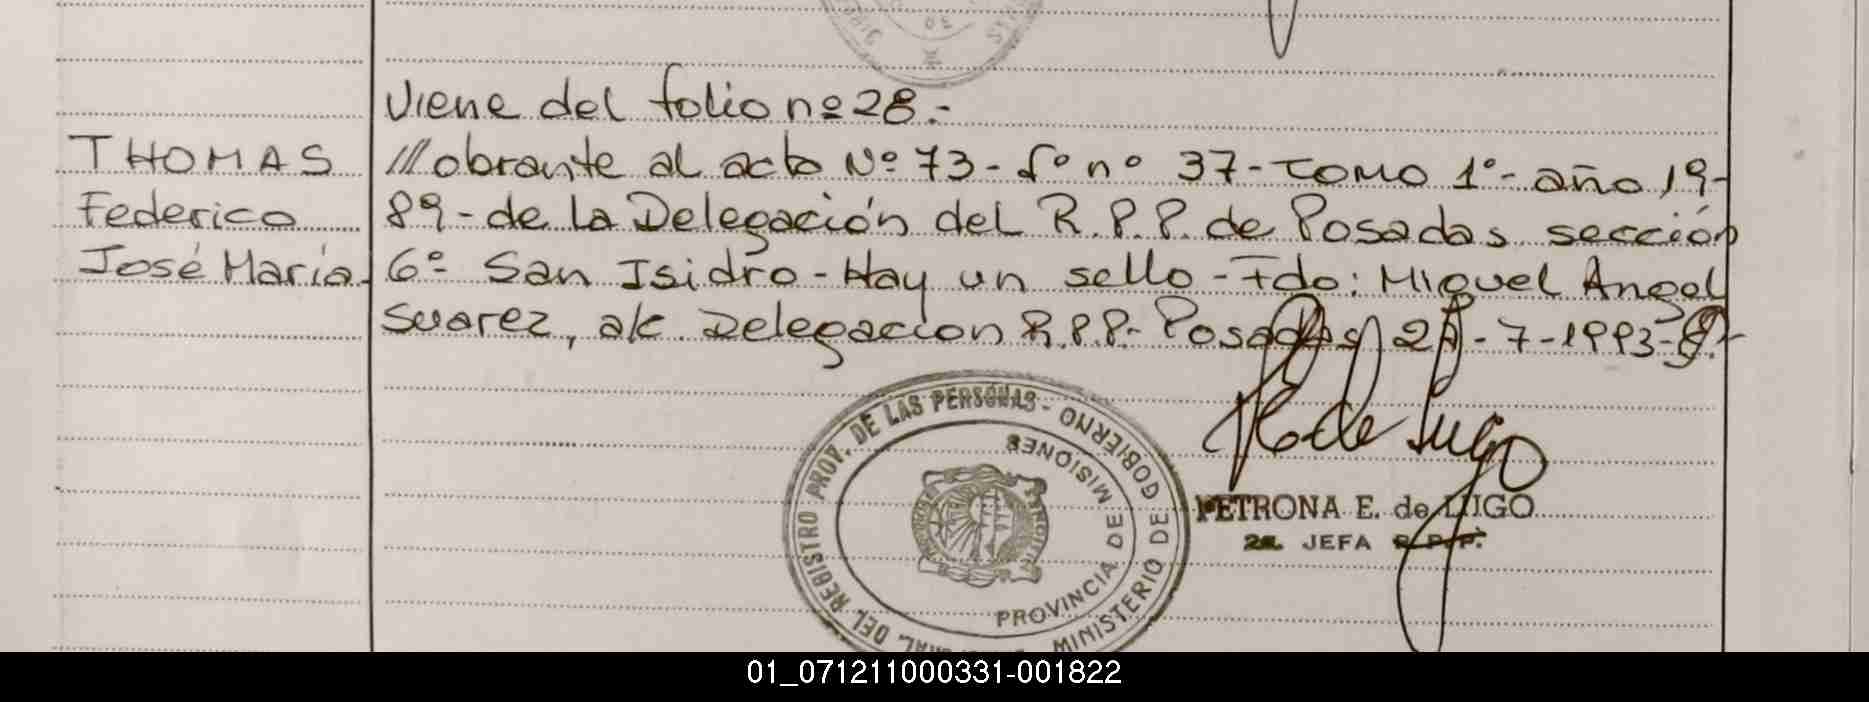 Viene del folio nº 28.-
THOMAS
Federico
José María.
///obrante al acta Nº 73- fº nº 37- Tomo 1º- año 19-
89- de la Delegación del R.P.P. de Posadas sección
6º- San Isidro - Hay un sello - Fdo: Miguel Angel
Suarez, a/c Delegacion R.P.P.- Posadas, -7-1993-
PETRONA E. de LUGO
2a. JEFA R.P.P.
DEL REGISTRO PROV. DE LAS PERSONAS - MINISTERIO DE GOBIERNO
PROVINCIA DE MISIONES
01_071211000331-001822